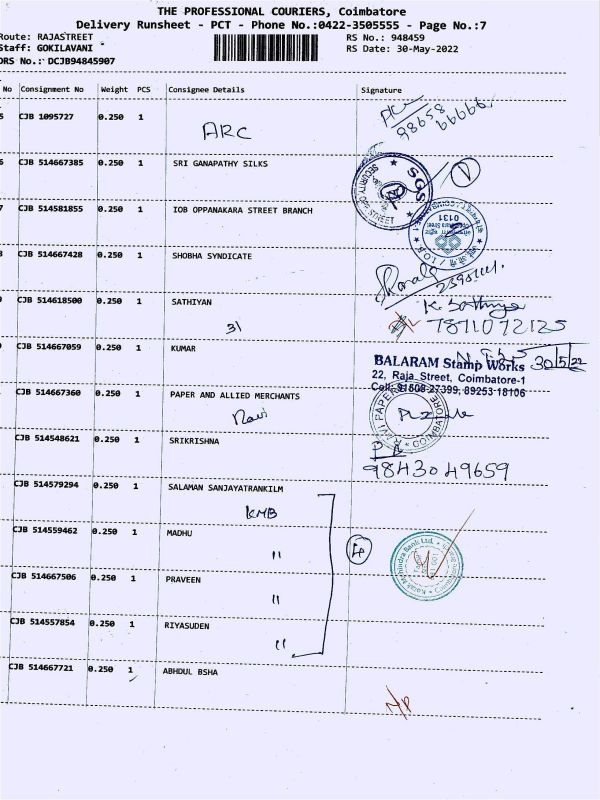 THE PROFESSIONAL COURIERS, Coimbatore
Delivery Runsheet - PCT - Phone No.:0422-3505555 - Page No.:7
Route: RAJASTREET
RS No.: 948459
Staff: GOKILAVANI
RS Date: 30-May-2022
DRS No.: DCJB94845907
No Consignment No Weight PCS Consignee Details Signature
5 CJB 1095727 0.250 1
ARC
6 CJB 514667385 0.250 1 SRI GANAPATHY SILKS
SGS
SECURITY OPP STREET
7 CJB 514581855 0.250 1 IOB OPPANAKARA STREET BRANCH
0131
CJB 514667428 0.250 1 SHOBHA SYNDICATE
CJB 514618500 0.250 1 SATHIYAN
K. Sathiya
31
7871072125
CJB 514667059 0.250 1 KUMAR
30/5/22
BALARAM Stamp Works
22, Raja Street, Coimbatore-1
Cell: 91808 27399, 89253 18106
CJB 514667360 0.250 1 PAPER AND ALLIED MERCHANTS
Ravi
RAVI PAPER
COIMBATORE
CJB 514548621 0.250 1 SRIKRISHNA
9843049659
CJB 514579294 0.250 1 SALAMAN SANJAYATRANKILM
KMB
CJB 514559462 0.250 1 MADHU
"
4
Kotak Mahindra Bank Ltd.
CJB 514667506 0.250 1 PRAVEEN
"
CJB 514557854 0.250 1 RIYASUDEN
"
CJB 514667721 0.250 1 ABHDUL BSHA
N/P